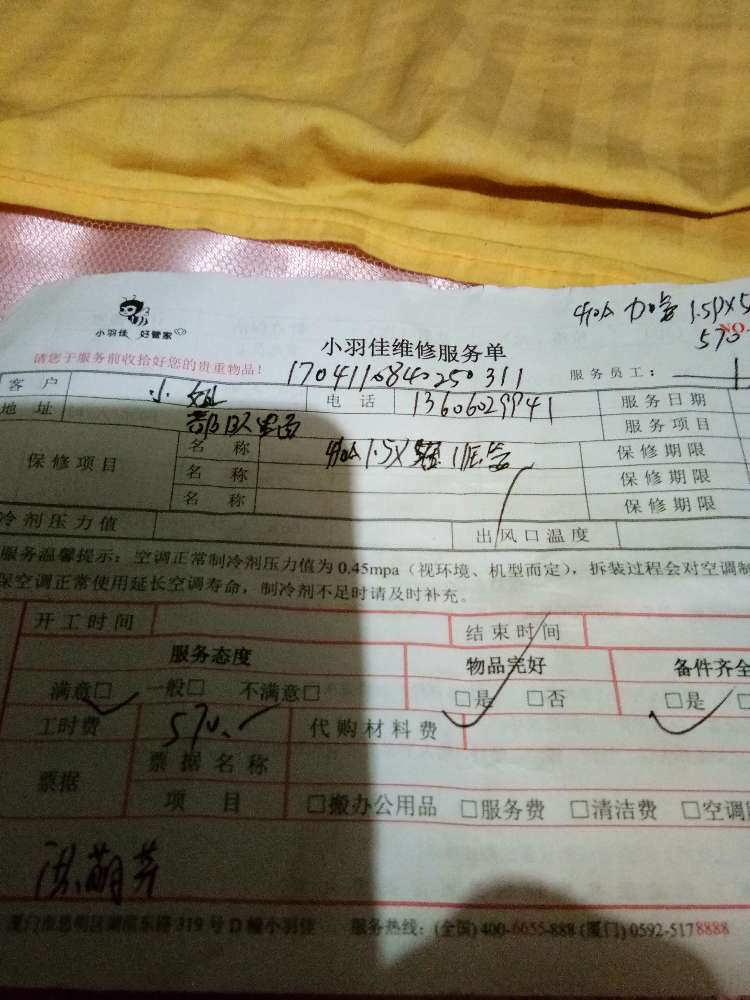 小羽佳 好管家
570
NO.
小羽佳维修服务单
请您于服务前收拾好您的贵重物品！
1704110840250311
服务员工：
客户 小 电话 13606029941 服务日期
地址 部队里面 服务项目
保修项目 名称 1.5X 保修期限
名称 保修期限
名称 保修期限
冷剂压力值 出风口温度
服务温馨提示：空调正常制冷剂压力值为0.45mpa（视环境、机型而定），拆装过程会对空调制
保空调正常使用延长空调寿命，制冷剂不足时请及时补充。
开工时间 结束时间
服务态度 物品完好 备件齐全
满意□ 一般□ 不满意□ □是 □否 □是
工时费 570. 代购材料费
票据 票据名称
项目 □搬办公用品 □服务费 □清洁费 □空调
洪萌芳
厦门市思明区湖滨东路319号D幢小羽佳 服务热线：(全国) 400-6655-888 (厦门) 0592-5178888